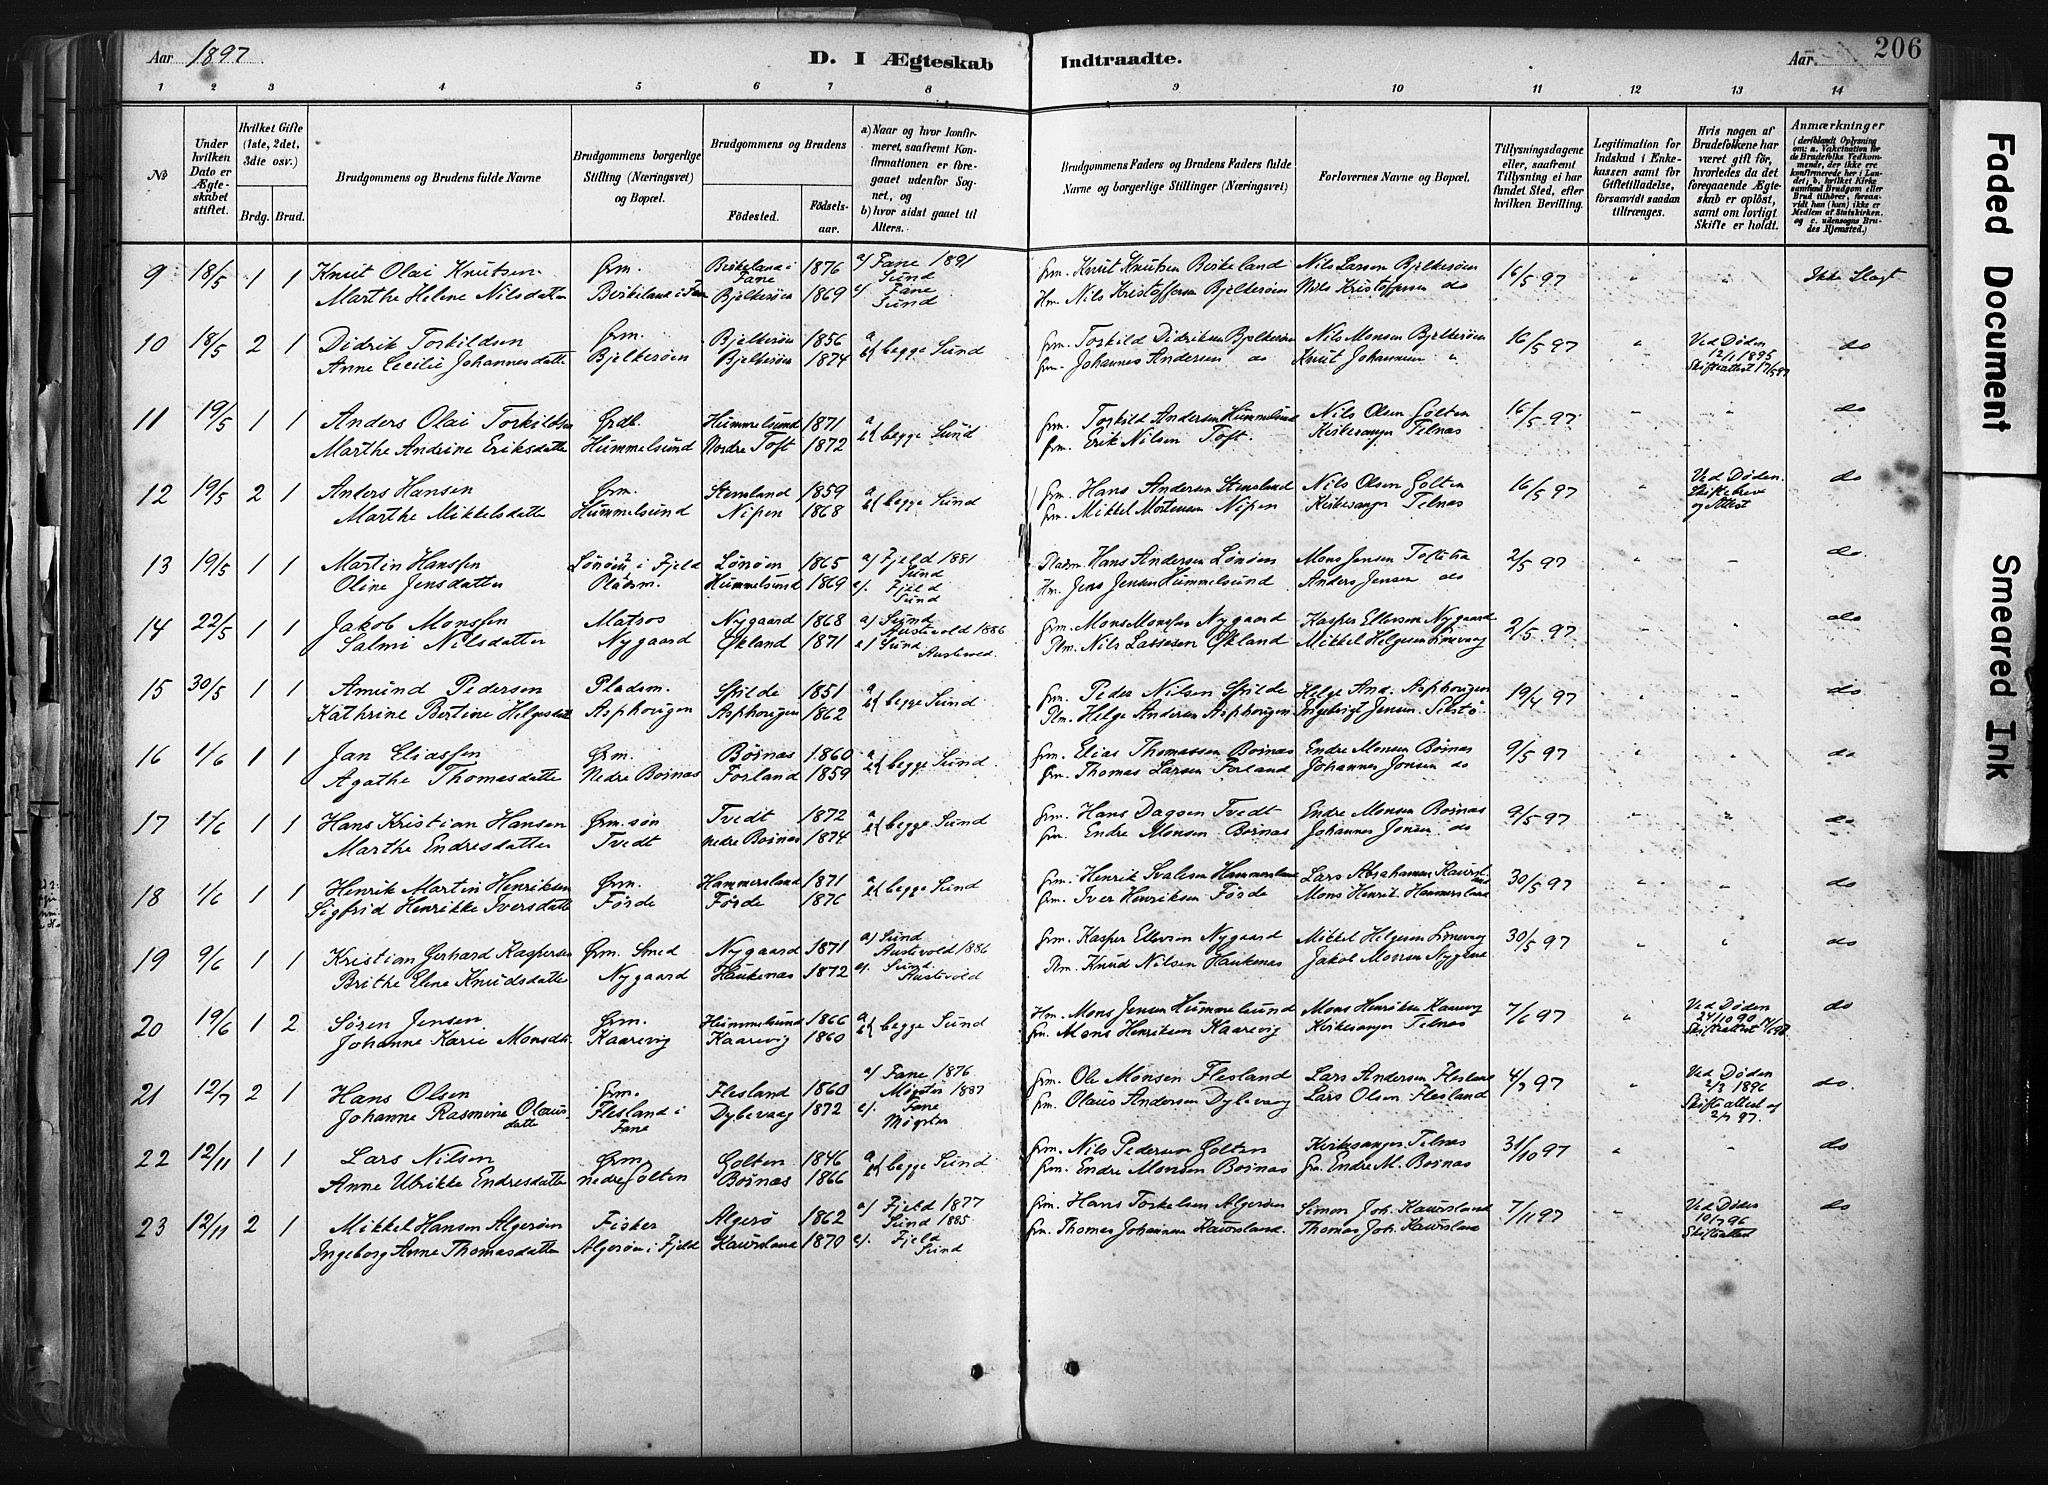 Aar 1897 D. I Ægteskab Indtraadte. Aar 206
1 2 3 4 5 6 7 8 9 10 11 12 13 14
No
Under hvilken Dato er Ægteskabet stiftet.
Hvilket Gifte (1ste, 2det, 3die osv.)
Brdg. Brud.
Brudgommens og Brudens fulde Navne
Brudgommens borgerlige Stilling (Næringsvei) og Bopæl.
Brudgommens og Brudens
Fødested. Fødselsaar.
a) Naar og hvor konfirmeret, saafremt Konfirmationen er foregaaet udenfor Sognet, og
b) hvor sidst gaaet til Alters.
Brudgommens Faders og Brudens Faders fulde Navne og borgerlige Stillinger (Næringsvei)
Forlovernes Navne og Bopæl.
Tillysningsdagene eller, saafremt Tillysning ei har fundet Sted, efter hvilken Bevilling.
Legitimation for Indskud i Enkekassen samt for Giftetilladelse, forsaavidt saadan tiltrænges.
Hvis nogen af Brudefolkene har været gift før, hvorledes da det foregaaende Ægteskab er opløst, samt om lovligt Skifte er holdt.
Anmærkninger (deriblandt Oplysning om: a. Vakcination for de Brudefolks Vedkommende, der ikke ere konfirmerede her i Landet; b. hvilket Kirkesamfund Brudgom eller Brud tilhører, forsaavidt han (hun) ikke er Medlem af Statskirken, og c. udensogns Brudes Hjemsted.)
9 18/5 1 1 Knut Olai Knutsen Grm. Birkeland i Fane 1876 a/ Fane 1891 Sund Grm. Knut Knutsen Birkeland Nils Larsen Bjelkerøen 16/5 97 " " Ikke Slægt
Marthe Helene Nilsdatter Birkeland i Fane Bjelkerøen 1869 b/ Fane Sund Hm. Nils Kristoffersen Bjelkerøen Nils Kristoffersen do
10 18/5 2 1 Didrik Torkildsen Grm. Bjelkerøen 1856 a b/ begge Sund Grm. Torkild Didriksen Bjelkerøen Nils Monsen Bjelkerøen 16/5 97 " Ved Døden 12/1 1895 Skifteattest 17/5 97 do
Anne Cecilie Johannesdatter Bjelkerøen Bjelkerøen 1874 Grm. Johannes Andersen do Knut Johannesen "
11 19/5 1 1 Anders Olai Torkildsen Grdb. Hummelsund 1871 a b/ begge Sund Grm. Torkild Andersen Hummelsund Nils Olsen Golten 16/5 97 " " do
Marthe Andrine Eriksdatter Hummelsund Nordre Toft 1872 Grm. Erik Nilsen Toft. Kirkesanger Telnas
12 19/5 2 1 Anders Hansen Grm. Stensland 1859 a b/ begge Sund Grm. Hans Andersen Stensland Nils Olsen Golten 16/5 97 " Ved Døden. Skiftebrev og Attest do
Marthe Mikkelsdatter Hummelsund Nipen 1868 Grm. Mikkel Mortensen Nipen Kirkesanger Telnas
13 19/5 1 1 Martin Hanssen Lønøen i Fjeld Lønøen 1865 a/ Fjeld 1881 Sund Pladsm. Hans Andersen Lønøen Mons Jensen Toftetræ 2/5 97 " " do
Oline Jensdatter Pladsm. Hummelsund 1869 b/ Fjeld Sund Hm. Jens Jensen Hummelsund Anders Jensen do
14 22/5 1 1 Jakob Monssen Matros Nygaard 1868 a/ Sund Austevold 1886 Grm. Mons Monssen Nygaard Kasper Ellevsen Nygaard 2/5 97 " " do
Salmi Nilsdatter Nygaard Økland 1871 b/ Sund Austevold. Plm. Nils Lassesen Økland Mikkel Helgesen Limevaag
15 30/5 1 1 Amund Pedersen Pladsm. Spilde 1851 a b/ begge Sund Grm. Peder Nilsen Spilde Helge And. Asphovigen 19/4 97 " " do
Kathrine Bertine Helgesdatt Asphovigen Asphovigen 1862 Plm. Helge Andersen Asphovigen Ingebrigt Jensen Sekstø
16 1/6 1 1 Jan Eliassen Grm. Bornas 1860 a b/ begge Sund Grm. Elias Thomassen Bornas Endre Monsen Bornas 9/5 97 " " do
Agathe Thomasdatter Nedre Bornas Forland 1859 Grm. Thomas Larsen Forland Johannes Jonsen do
17 1/6 1 1 Hans Kristian Hansen Grm. søn Tvedt 1872 a b/ begge Sund Grm. Hans Dagsen Tvedt Endre Monsen Bornas 9/5 97 " " do
Marthe Endresdatter Tvedt nedre Bornas 1874 Grm. Endre Monsen Bornas Johannes Jonsen do
18 1/6 1 1 Henrik Martin Henriksen Grm. Hammersland 1871 a b/ begge Sund Grm. Henrik Ivalesen Hammersland Lars Abrahamsen Kaursland 30/5 97 " " do
Sigfrid Henrikke Iversdatter Førde Førde 1876 Grm. Iver Henriksen Førde Mons Henrik Hammersland
19 9/6 1 1 Kristian Gerhard Kaspersen Grm. Smed Nygaard 1871 a/ Sund Austevold 1886 Grm. Kasper Ellevsen Nygaard Mikkel Helgesen Limevaag 30/5 97 " " do
Brithe Elene Knudsdatter Nygaard Haukenas 1872 b/ Sund. Austevold Plm. Knud Nilsen Haukenas Jakob Monsen Nygaard
20 19/6 1 2 Søren Jensen Grm. Hummelsund 1866 a b/ begge Sund Hm. Mons Jensen Hummelsund Mons Henriksen Kaarevig 7/6 97 " Ved Døden 24/10 90 Skifteattest do
Johanne Karie Monsdt. Kaarevig Kaarevig 1860 Grm. Mons Henriksen Kaarevig Kirkesanger Telnas
21 12/7 2 1 Hans Olsen Grm. Flesland 1860 a/ Fane 1876 Møgster 1887 Grm. Ole Monsen Flesland Lars Andersen Flesland 4/7 97 " Ved Døden 2/3 1896 Skifteattest af 2/7 97. do.
Johanne Rasmine Olausdatte Flesland i Fane Dylevaag 1872 b/ Fane Møgster Grm. Olaus Andersen Dylevaag Lars Olsen Flesland
22 12/11 1 1 Lars Nilsen Grm. Golten 1846 a b/ begge Sund Grm. Nils Pedersen Golten Kirkesanger Telnas 31/10 97 " " do
Anne Ulrikke Endresdatter nedre Golten Bornas 1866 Grm. Endre Monsen Bornas Gm. Endre M. Bornas
23 12/11 2 1 Mikkel Hansen Algerøen Fisker Algerø 1862 a/ Fjeld 1877 Sund 1885 Grm. Hans Torkelsen Algerøen Simon Joh. Kaursland 7/11 97 " Ved Døden 10/7 96 Skifteattest do
Ingeborg Anne Thomasdatter Algerøen i Fjeld Kaursland 1870 b/ Fjeld Sund Grm. Thomas Johannesen Kaursland. Thomas Joh. Kaursland
Faded Document
Smeared Ink